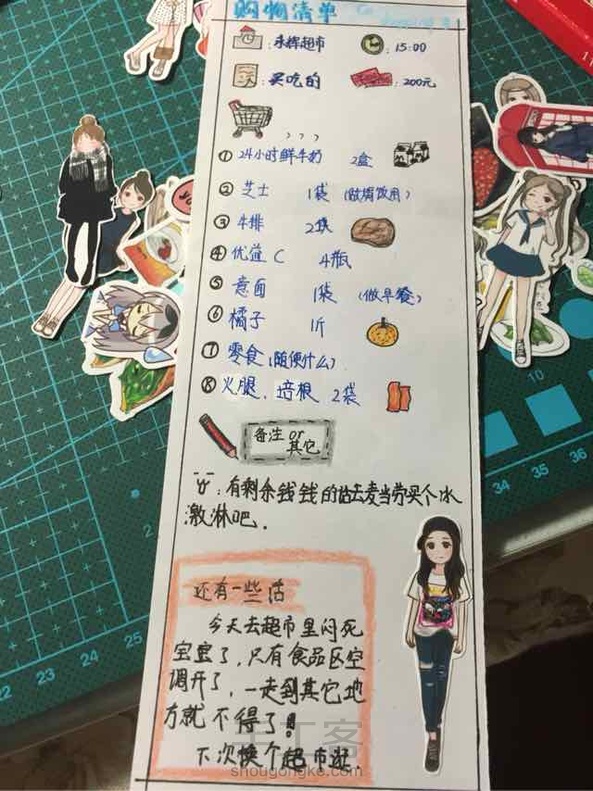 购物清单
:永辉超市 :15:00
:买吃的 :200元
① 24小时鲜牛奶 2盒
② 芝士 1袋
③ 牛排 2块
④ 优益C 4瓶
⑤ 意面 1袋 (做早餐)
⑥ 橘子 1斤
⑦ 零食(随便什么)
⑧ 火腿、培根 2袋
备注 or
其它
:有剩余钱钱的话去麦当劳买个冰
激淋吧.
还有一些话
今天去超市里闷死
宝宝了,只有食品区空
调开了,一走到其它地
方就不得了!
下次换个超市逛.
shougongke.com
34
35
36
10
22
23
24
25